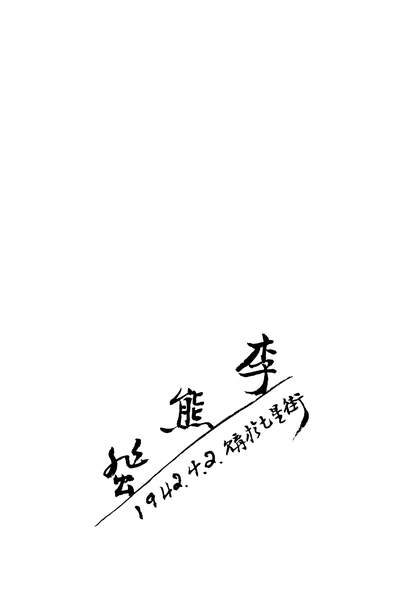 李熊
1942.4.2. 購於七星街